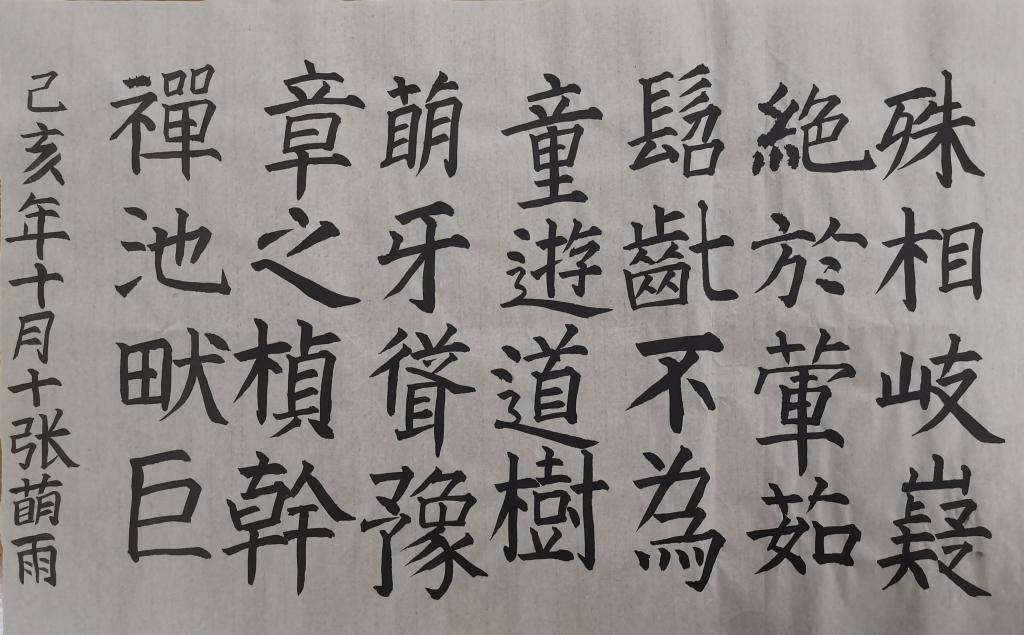 殊相岐嶷
絕於葷茹
髫齔不為
童遊道樹
萌牙聳豫
章之楨幹
禪池畎巨
己亥年十月十张萌雨